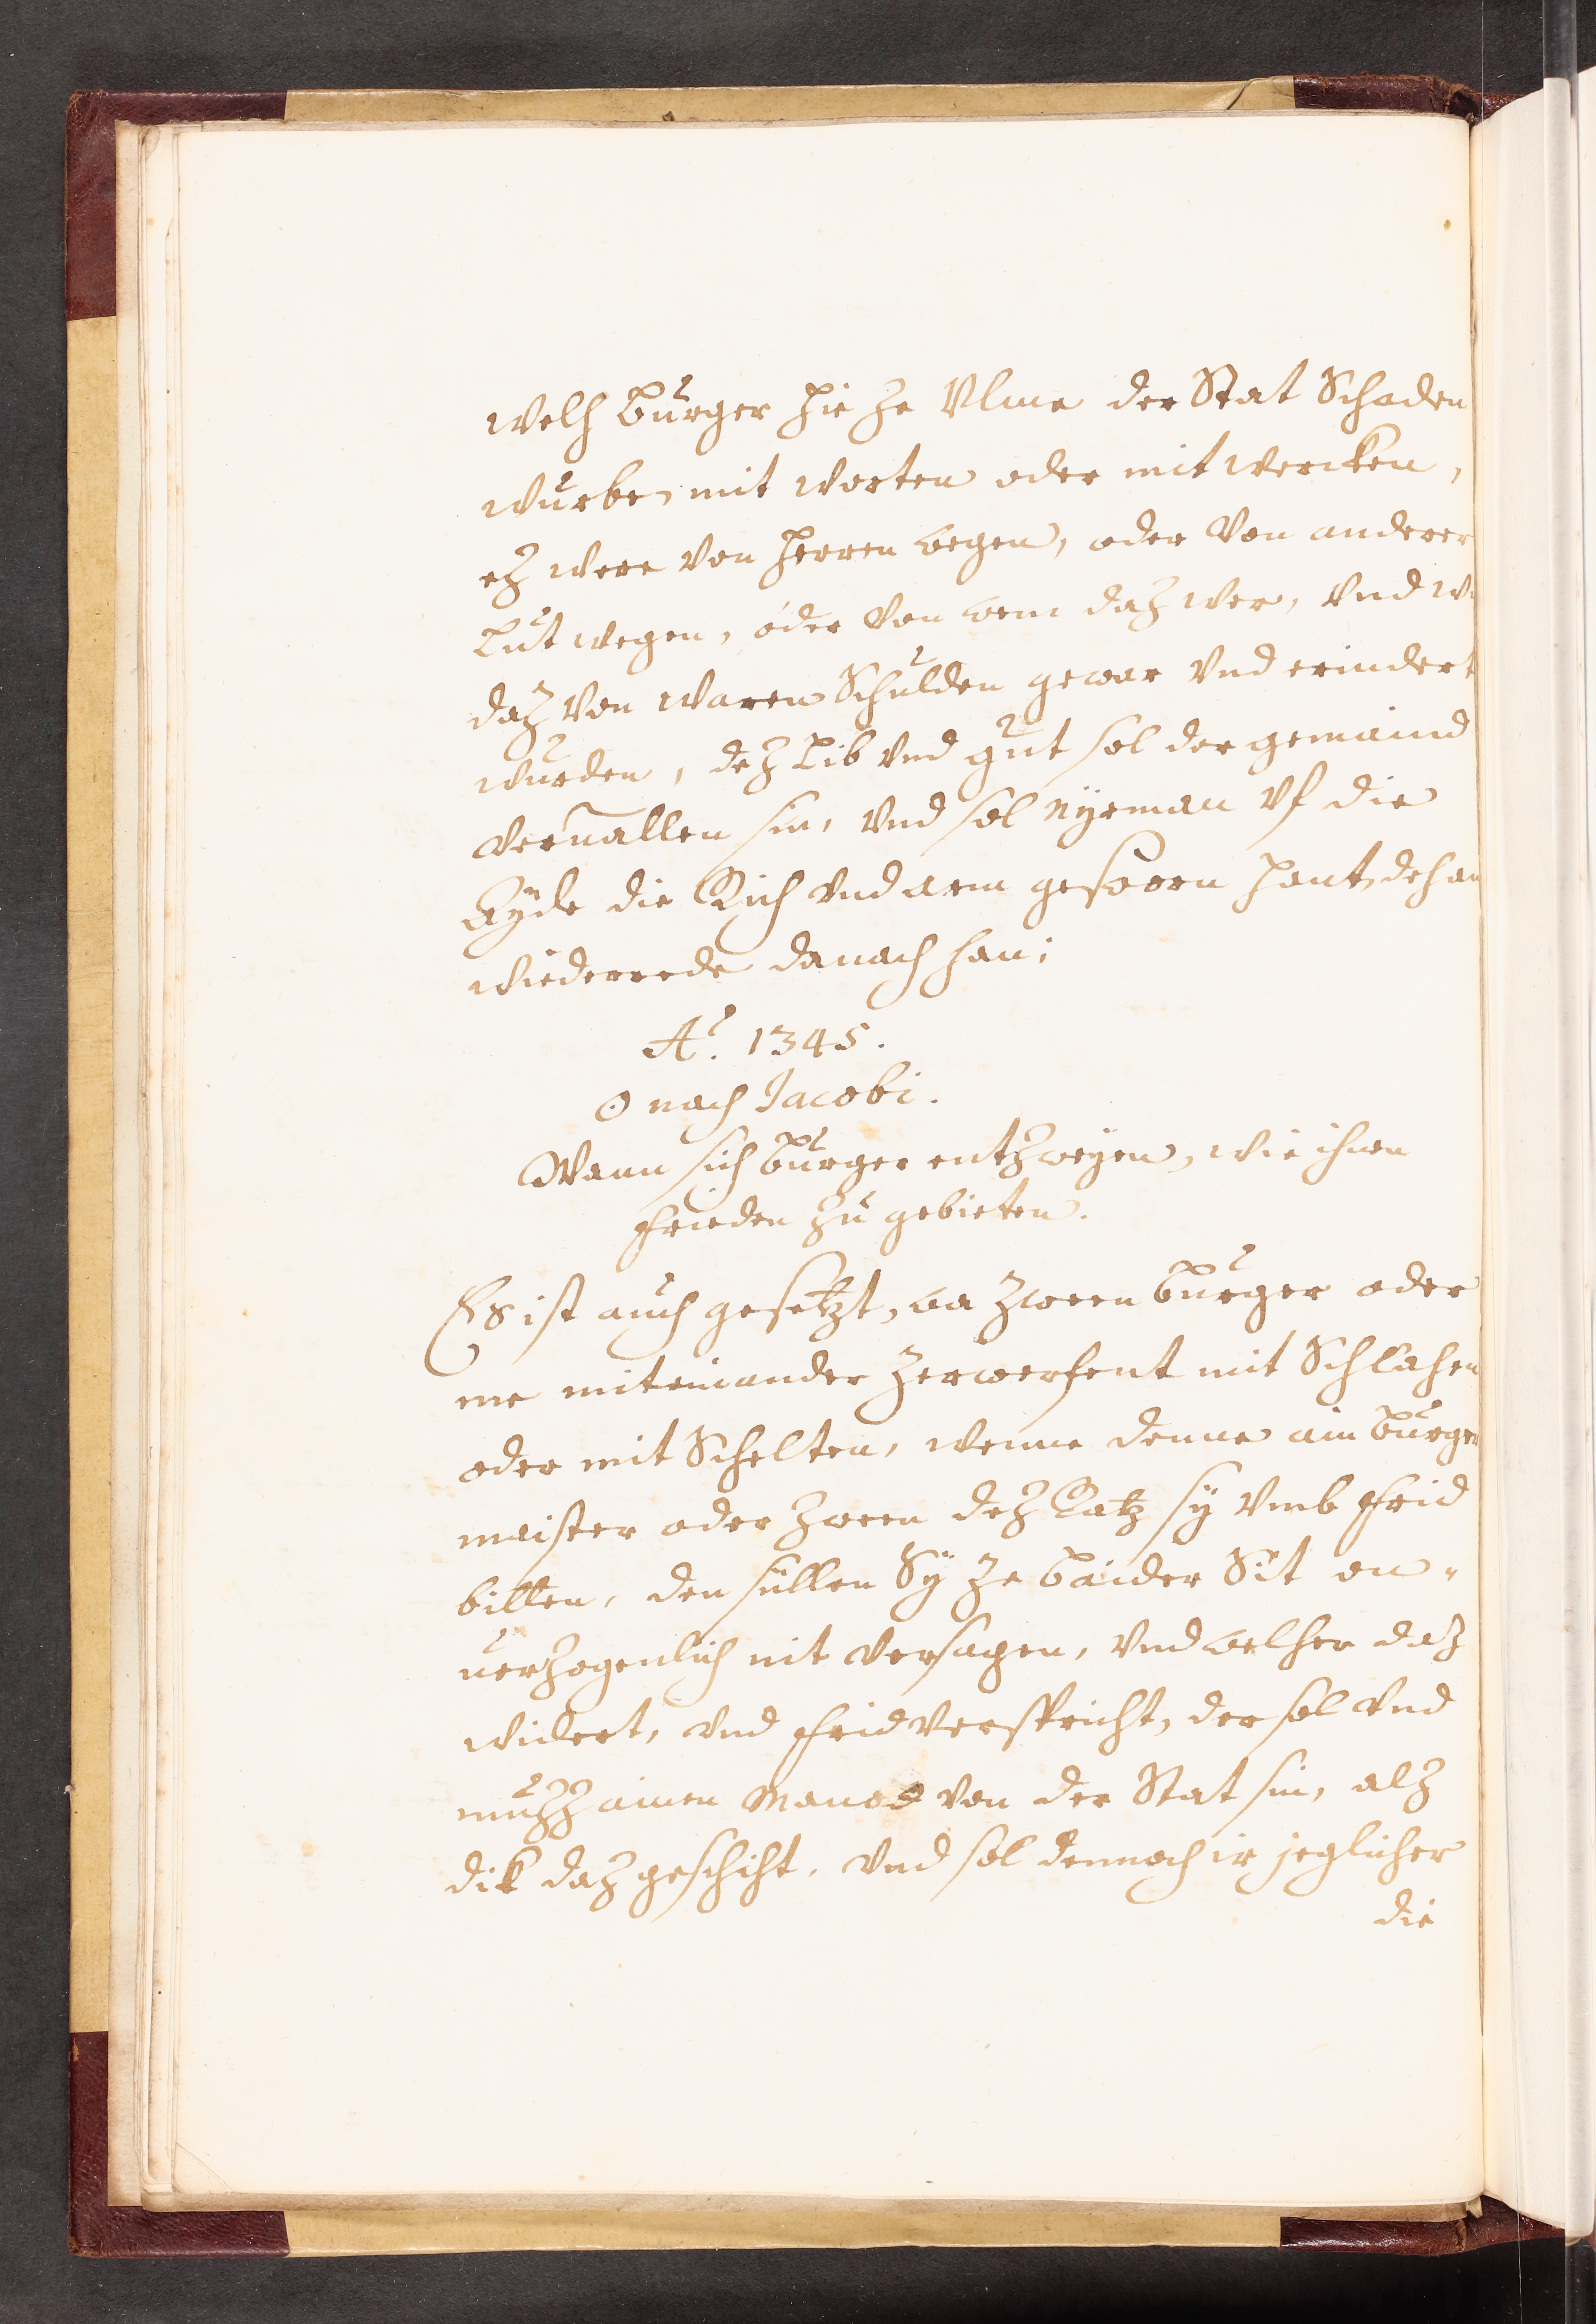 Welch Burger hie ze Ulme der Stat Schaden
wurbe, mit worten oder mit wercken,
ez were von Herren wegen, oder von anderer
Lut wegen, oder von wem daz wer, vnd w
daz von waren Schulden gewar vnd erindert
wurden, dez Lib vnd gut sol der gemaind
veruallen sin, vnd sol nyeman vf die
Ayde die Rich vnd arm gesworn hant, dehain
wiederrede danach han;
Aº. 1345.
☉ nach Jacobi.
Wann sich Burger entzweyen, wie ihnen
Frieden zu gebieten.
Es ist auch gesetzt, wa zween Burger oder
me miteinander zerwerfent mit Schlahen
oder mit Schelten, wenne denne ain Burger
maister oder zween dez Ratz sy vmb Frid
bitten, den sullen Sy ze baider Sit on„
uerzogenlich nit versagen, vnd welher daz
widert, vnd Frid verspricht, der sol vnd
muzz ainen Manod von der Stat sin, alz
dik daz geschiht, vnd sol dennoch ir jeglicher
die